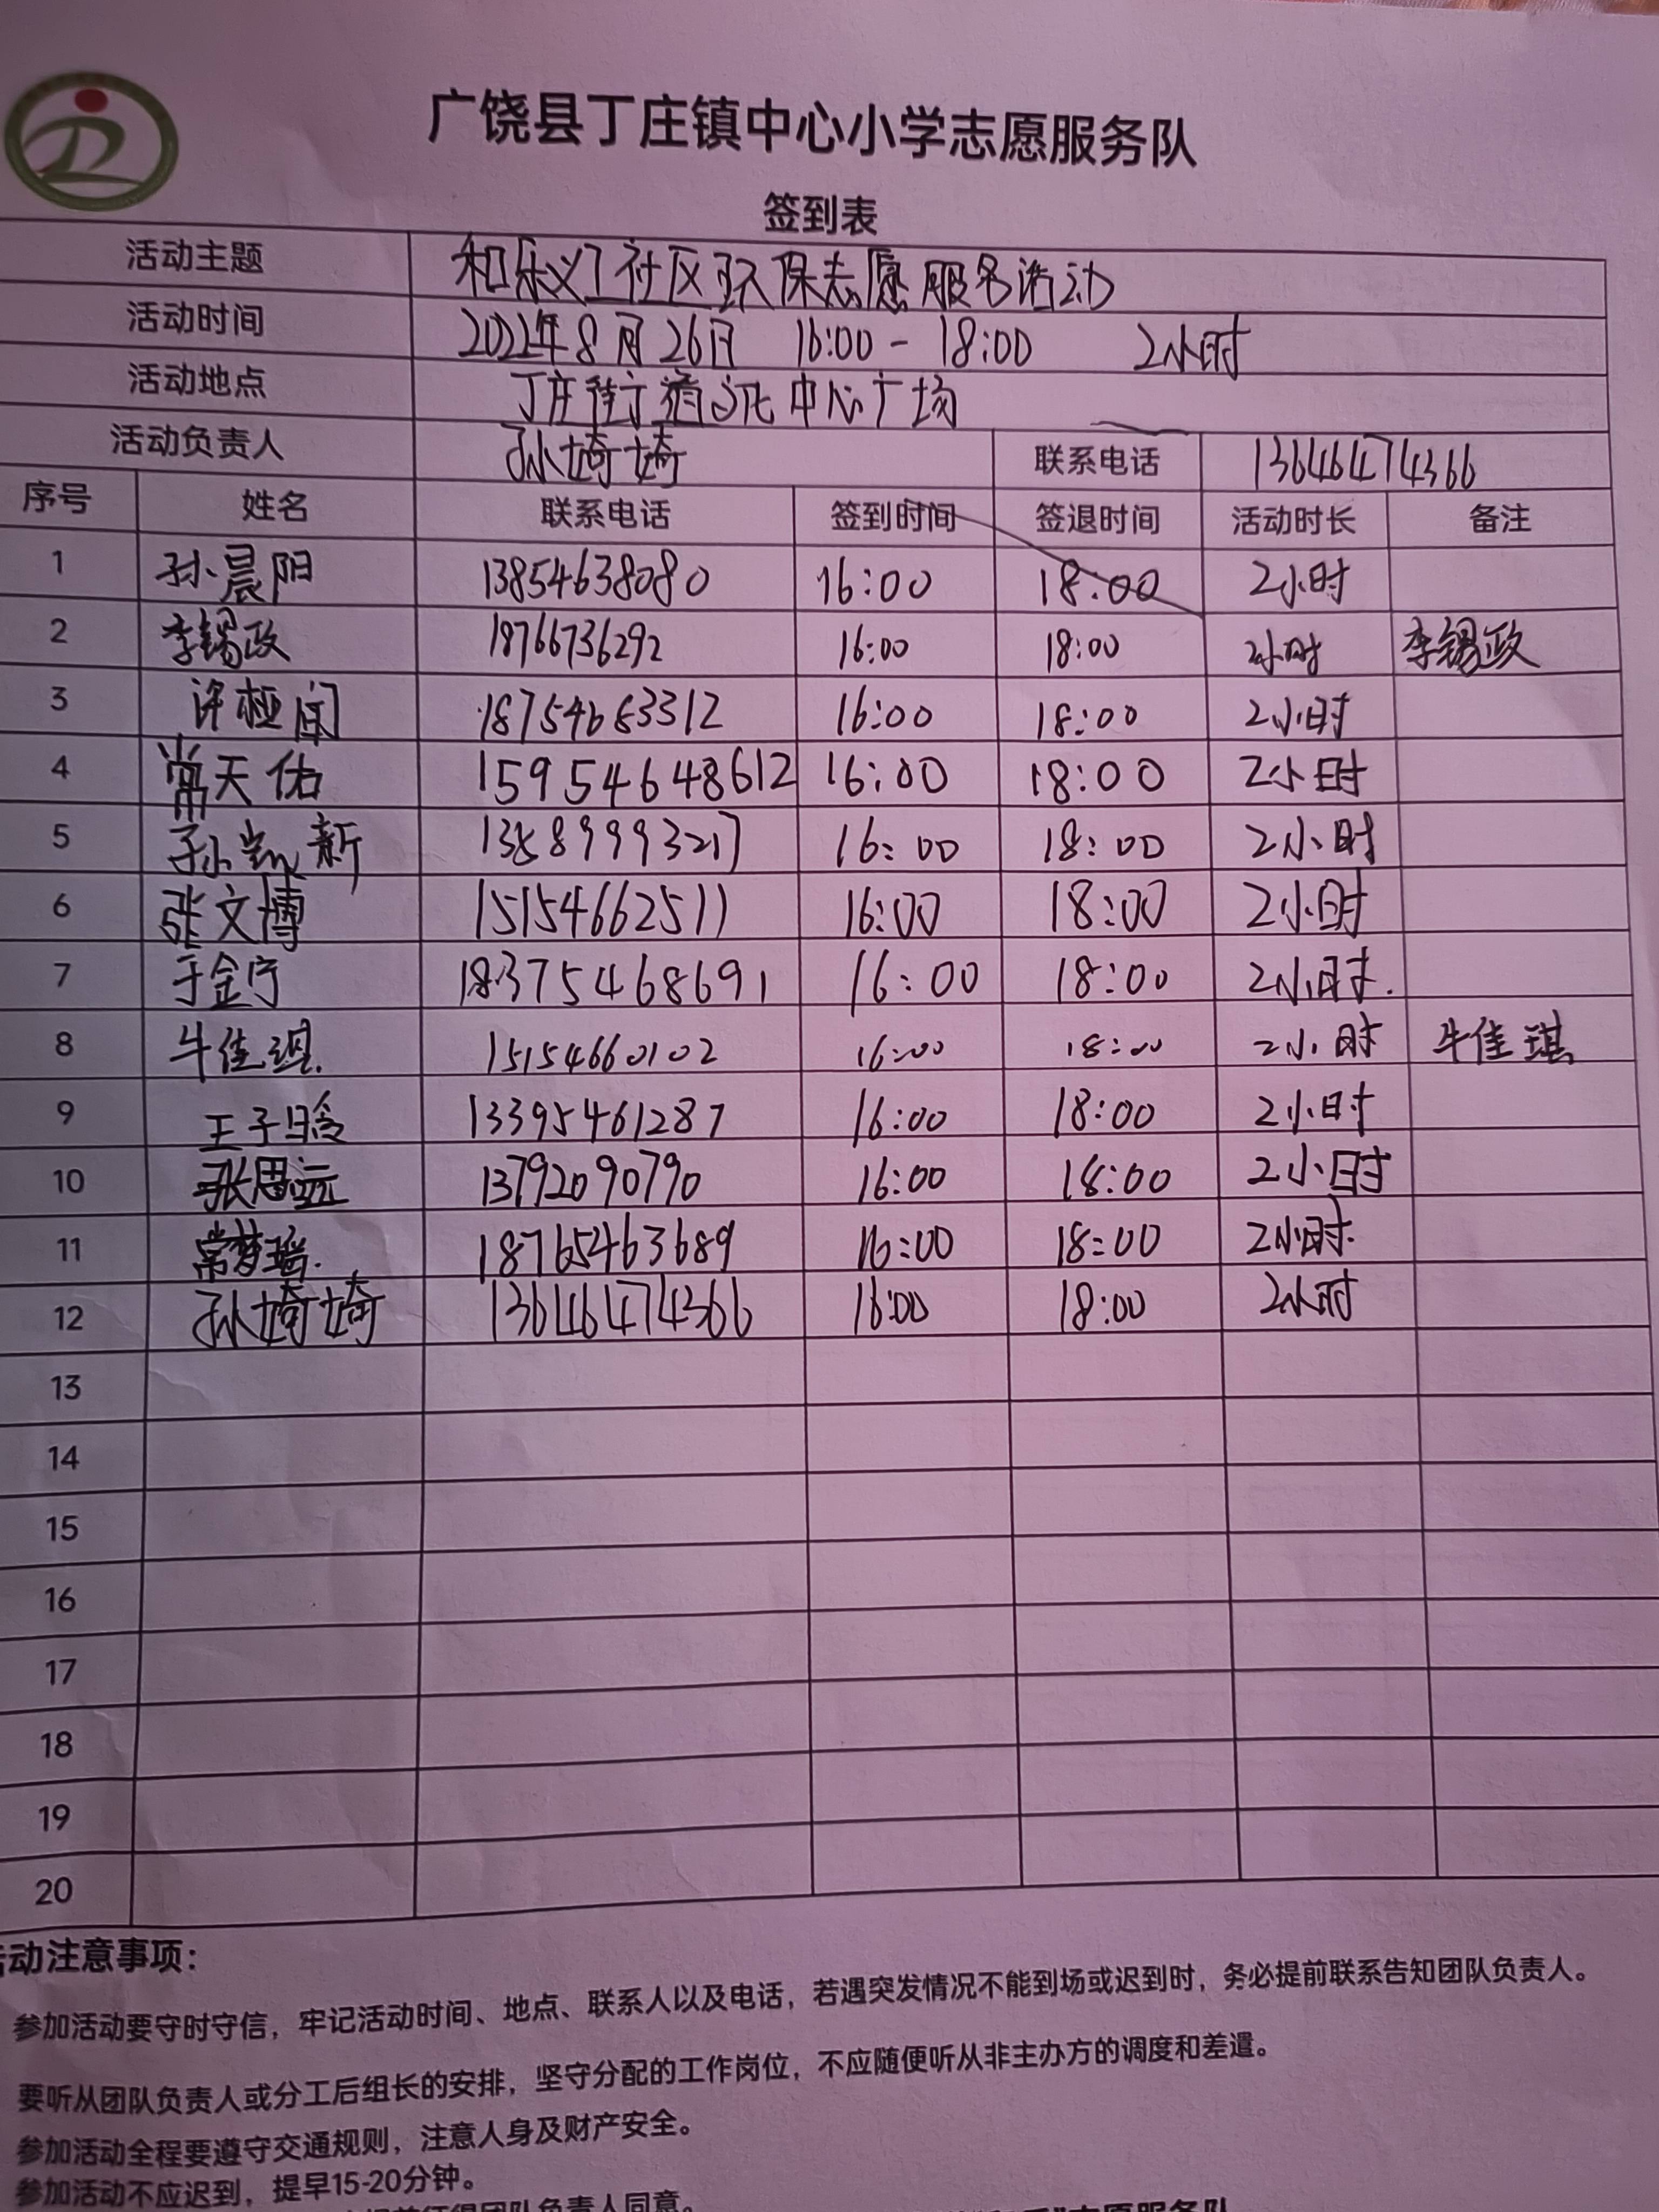 广饶县丁庄镇中心小学志愿服务队
签到表
活动主题 和乐义工社区环保志愿服务活动
活动时间 2022年8月26日 16:00-18:00 2小时
活动地点 丁庄街道文化中心广场
活动负责人 孙婍婍 联系电话 13646474366
序号 姓名 联系电话 签到时间 签退时间 活动时长 备注
1 孙晨阳 13854638080 16:00 18:00 2小时
2 李锡政 18766736292 16:00 18:00 2小时 李锡政
3 许桠闻 18754683312 16:00 18:00 2小时
4 常天佑 15954648612 16:00 18:00 2小时
5 孙凯新 13589993217 16:00 18:00 2小时
6 张文博 15154662511 16:00 18:00 2小时
7 于金宁 18375468691 16:00 18:00 2小时.
8 牛佳琪. 15154660102 16:00 18:00 2小时 牛佳琪
9 王子晗 13395461287 16:00 18:00 2小时
10 张思远 13792090790 16:00 18:00 2小时
11 常梦瑶. 18765463689 16:00 18:00 2小时.
12 孙婍婍 13646474366 16:00 18:00 2小时
13
14
15
16
17
18
19
20
活动注意事项：
参加活动要守时守信，牢记活动时间、地点、联系人以及电话，若遇突发情况不能到场或迟到时，务必提前联系告知团队负责人。
要听从团队负责人或分工后组长的安排，坚守分配的工作岗位，不应随便听从非主办方的调度和差遣。
参加活动全程要遵守交通规则，注意人身及财产安全。
参加活动不应迟到，提早15-20分钟。
团队负责人同意。
志愿服务队